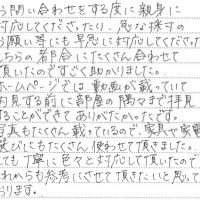 お問い合わせをする度に親身に
対応してくださったり、急な採寸の
お願い等にも早急に対応してくださった
こちらの都合にたくさん合わせて
頂いたのですごく助かりました。
ホームページでは動画が載っていて
内見する前に部屋の隅々まで拝見
することができてありがたかったです。
写真もたくさん載っているので、家具や家電
選びにもたくさん使わせて頂きました。
とても丁寧に色々と対応して頂いたので
これからも参考にさせて頂きたいと思って
おります。